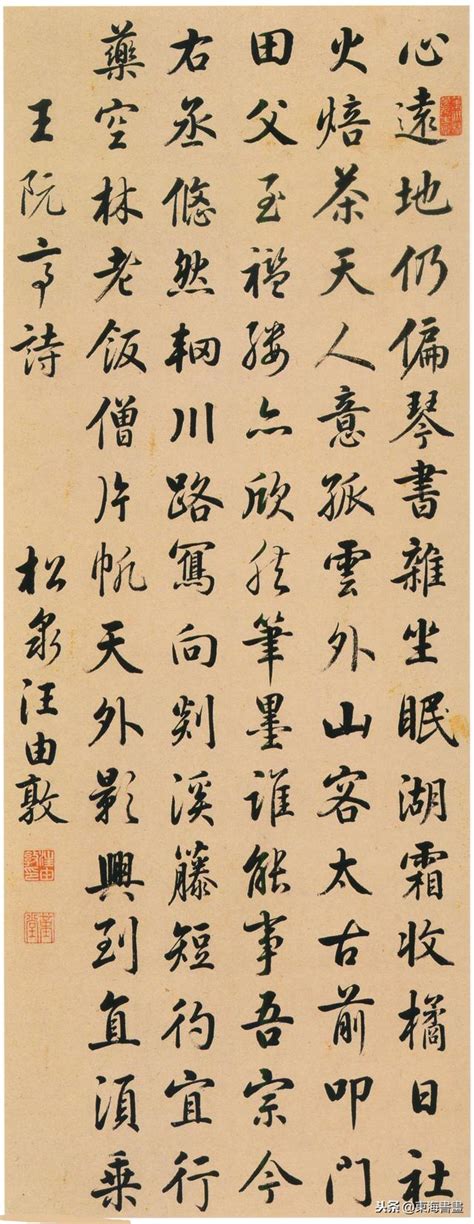 心遠地仍偏琴書雜坐眠湖霜收橘日社
火焙茶天人意孤雲外山客太古前叩門
田父至襤褸亦欣然筆墨誰能事吾宗今
右丞悠然輞川路寫向剡溪藤短彴宜行
藥空林老飯僧片帆天外影興到直須乘
王阮亭詩
松泉汪由敦
头条 @東海書畫